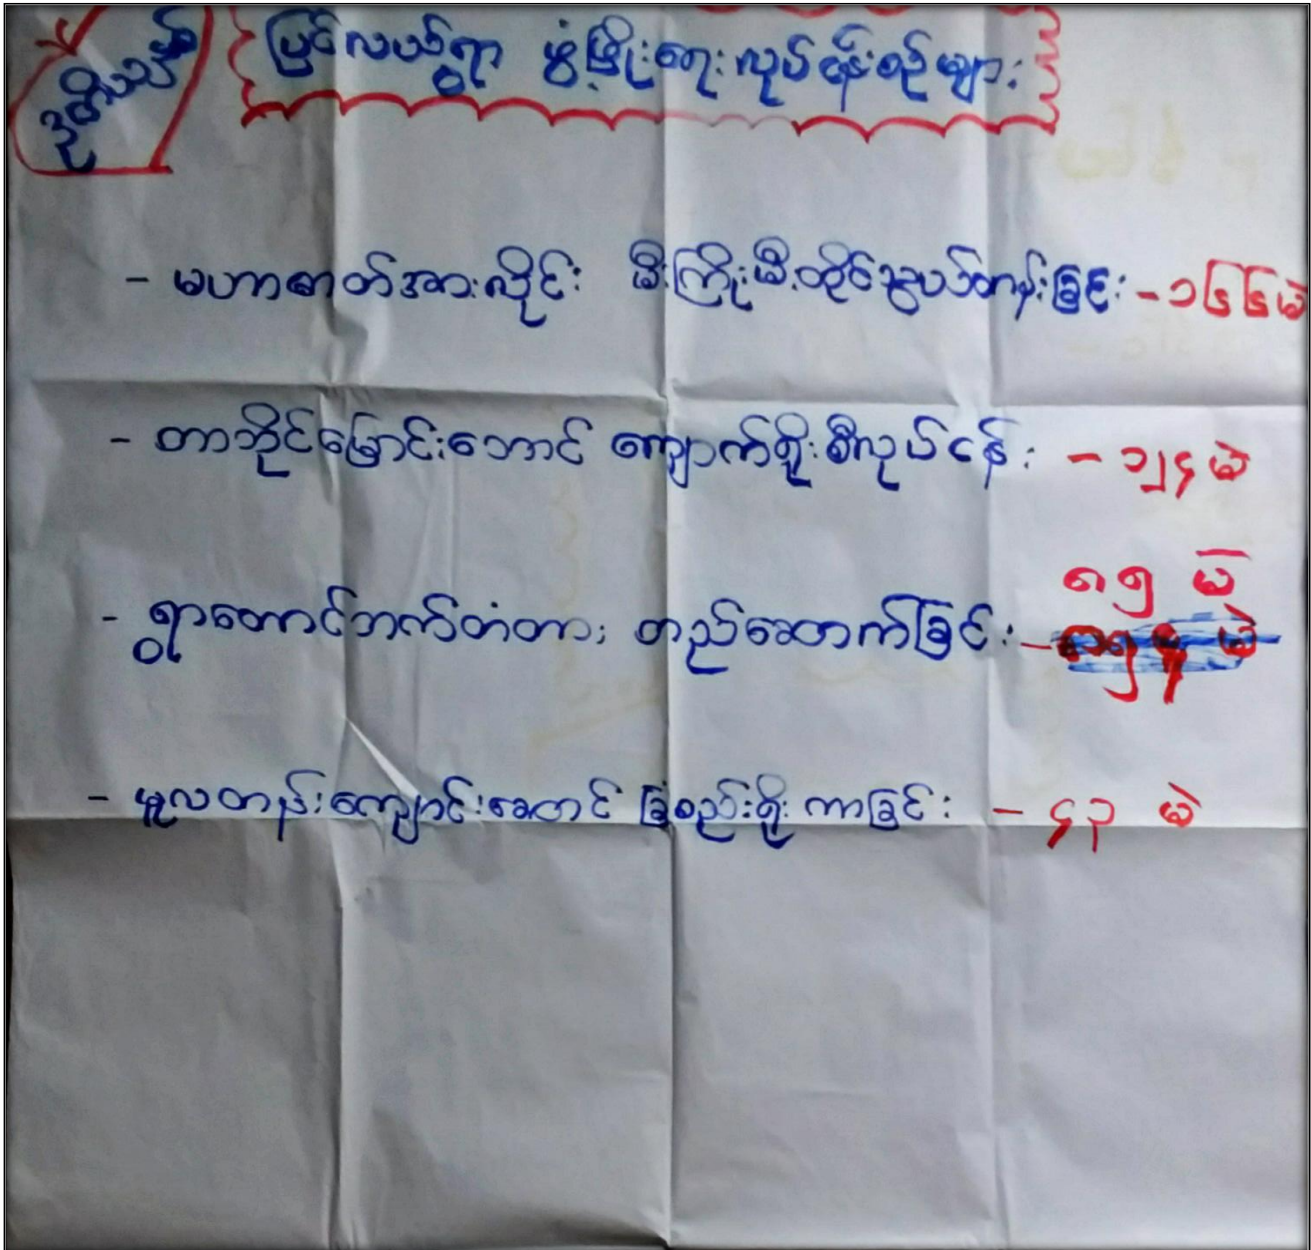 ဒုတိယ
ပြင်လယ်ရွာ ဖွံ့ဖြိုးရေးလုပ်ငန်းစဉ်များ
- မဟာဓာတ်အားလိုင်း မီးကြိုးမီးတိုင်သွယ်တန်းခြင်း - ၁၆၆မဲ
- တာဘိုင်မြောင်းဘောင် ကျောက်စီးစီလုပ်ငန်း - ၁၂၄မဲ
၈၅ မဲ
- ရွာတောင်ဘက်တံတား တည်ဆောက်ခြင်း -
- မူလတန်းကျောင်းဆောင် ခြံစည်းရိုး ကာခြင်း - ၄၃ မဲ